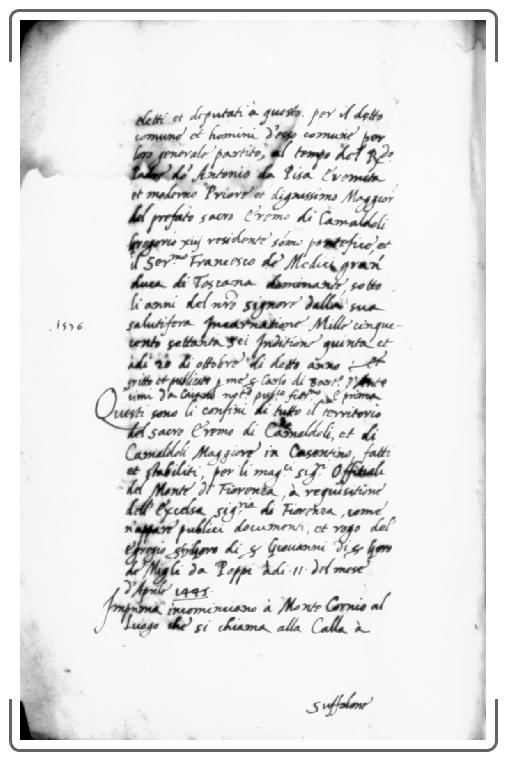 eletti et deputati à questo. per il detto
comune et homini d'esso comune per
loro generale partito, al tempo del Rdo.
Padre do' Antonio da Pisa Eremita
et moderno Priore et dignissimo Maggior
del prefato sacro Eremo di Camaldoli
Gregorio xiij residente somo pontefice, et
il Sermo Francesco de' Medici gran
duca di Toscana dominante, sotto
li anni del nro signore dalla sua
1576.
salutifera Incarnatione Mille cinque-
cento settanta sei Inditione quinta et
adi 20 di ottobre di detto anno; Et
scritto et publicato p me s Carlo di
Questi sono li confini di tutto il territorio
del sacro Eremo di Camaldoli, et di
Camaldoli Maggiore in Casentino, fatti
et stabiliti, per li magci sigri Offitiali
del Monte di Fiorenza, à requisitione
dell' Excelsa sigria di Fiorenza, come
n'appare publici documenti, et rogo del
Egregio di s Giovanni di s
de' Migli da Poppi adi .11. del mese
d'Aprile 1445.
Imprima incominciano à Monte Cornio al
Luogo che si chiama alla Calla à
Suffolone